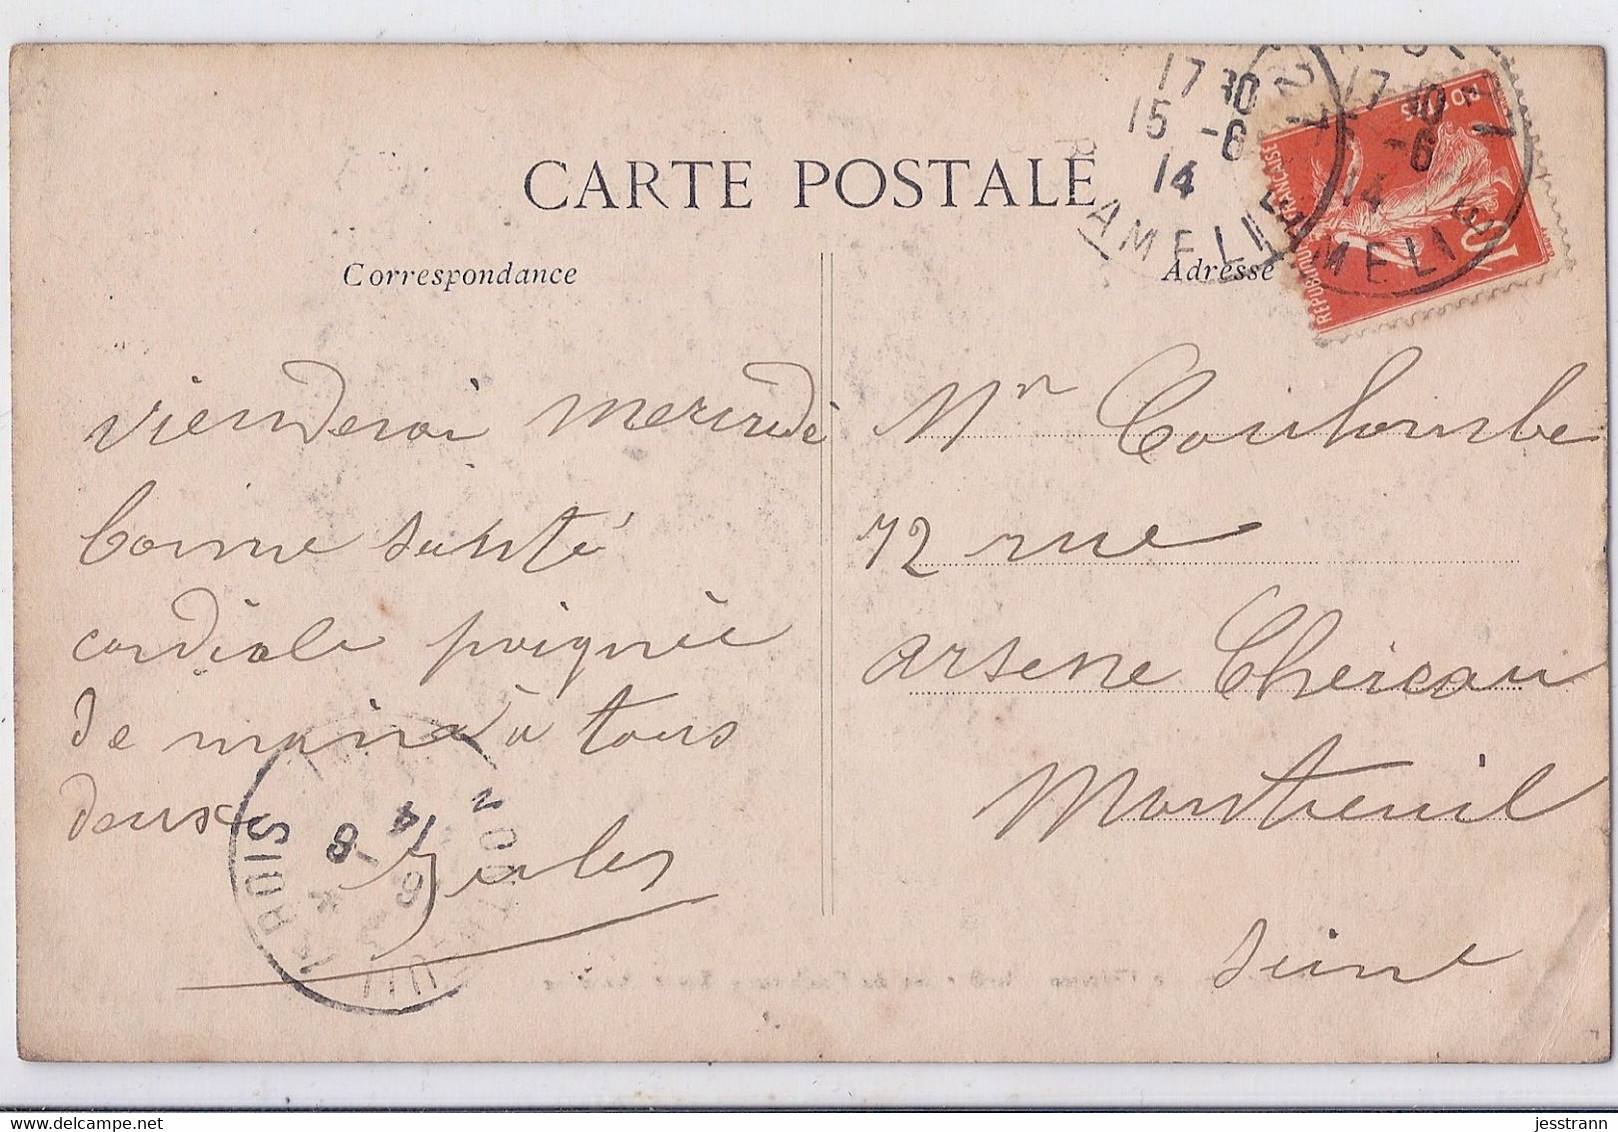 CARTE POSTALE
Correspondance
Adresse
17 30
15 -6
14
AMELIE
17 30
-6
14
AMELIE
RÉPUBLIQUE FRANÇAISE
POSTES
10
vienderai mercredi
bonne santé
cordiale poignée
de main à tous
deux
Jules
Mr Coulombe
72 rue
arsene Chereau
Montreuil
Seine
MONTREUIL
BOIS
8
14
6
© www.delcampe.net
jesstrann